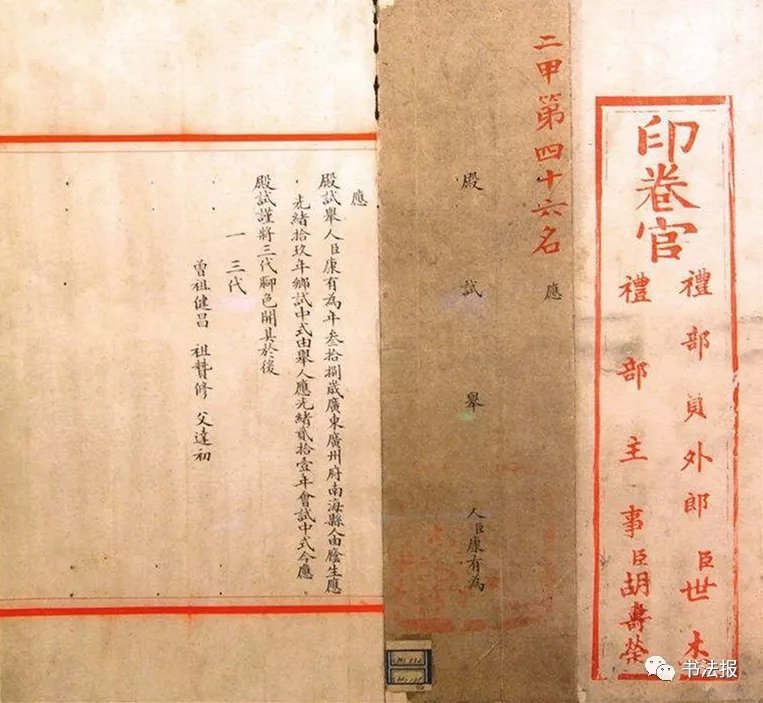 印卷官
禮部員外郎臣世杰
禮部主事臣胡壽榮
二甲第四十六名
應
殿試舉人臣康有為
應
殿試舉人臣康有為年叁拾捌歲廣東廣州府南海縣人由廕生應
光緒拾玖年鄉試中式由舉人應光緒貳拾壹年會試中式今應
殿試謹將三代腳色開具於後
一三代
曾祖健昌 祖贊修 父達初
书法报